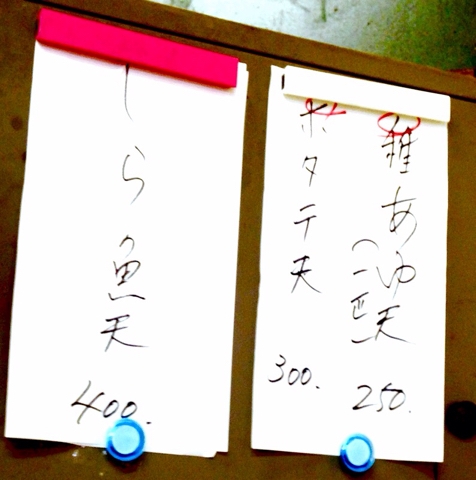 稚あゆ天
(一匹)
250.
ホタテ天
300.
しら魚天
400.